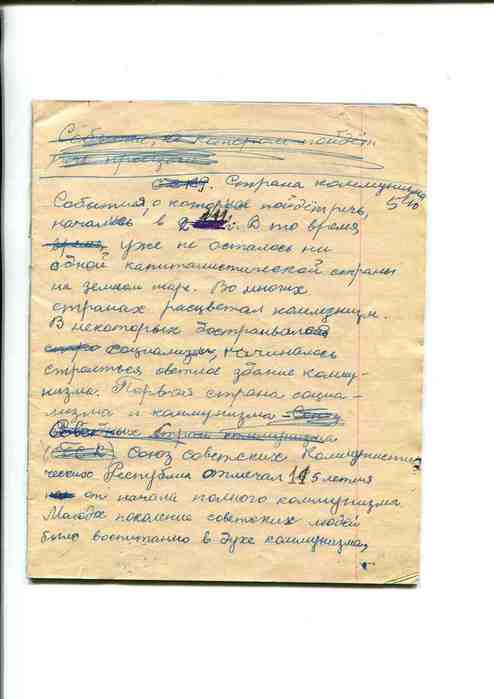 События, о котором пойдёт
речь
Страна коммунизма
События, о которых пойдёт речь,
начались в 2111 г. В то время
время, уже не осталось ни
одной капиталистической страны
на земном шаре. Во многих
странах расцветал коммунизм.
В некоторых достраивался
социализм, начиналось
строиться светлое здание комму-
низма. Первая страна социа-
лизма и коммунизма Союз
Советских
(ССКР) Союз советских Коммунисти-
ческих Республик отмечал 115 летия
от начала полного коммунизма.
Молодое поколение советских людей
было воспитанно в духе коммунизма,